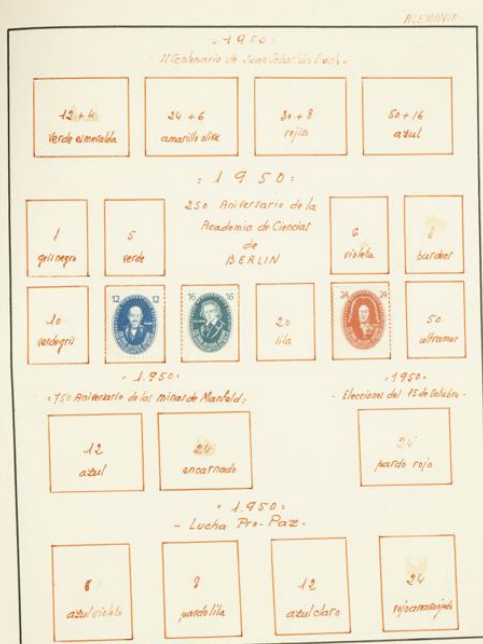 ALEMANIA
- 1950 -
- II Centenario de Juan Sebastián Bach -
12 + 4
verde esmeralda
24 + 6
amarillo oliva
30 + 8
rojizo
50 + 16
azul
: 1950 :
250 Aniversario de la
Academia de Ciencias
de
BERLIN
1
gris negro
5
verde
6
violeta
8
burdeos
10
verdegris
12 12
16 16
20
lila
24 24
50
ultramar
- 1.950 -
- 750 Aniversario de las minas de Manfeld -
- 1950 -
- Elecciones del 15 de Octubre -
12
azul
24
encarnado
24
pardo rojo
: 1.950 :
- Lucha Pro-Paz -
6
azul violeta
8
pardo lila
12
azul claro
24
rojo anaranjado